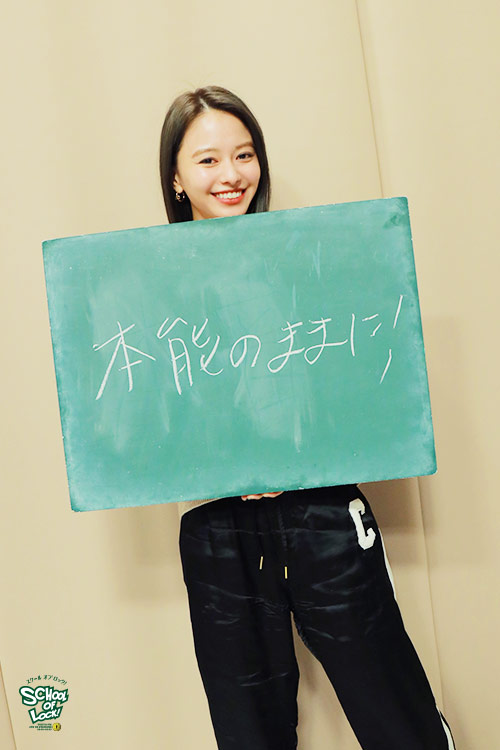 本能のままに!
C
スクール オブ ロック!
SCHOOL
OF
LOCK!